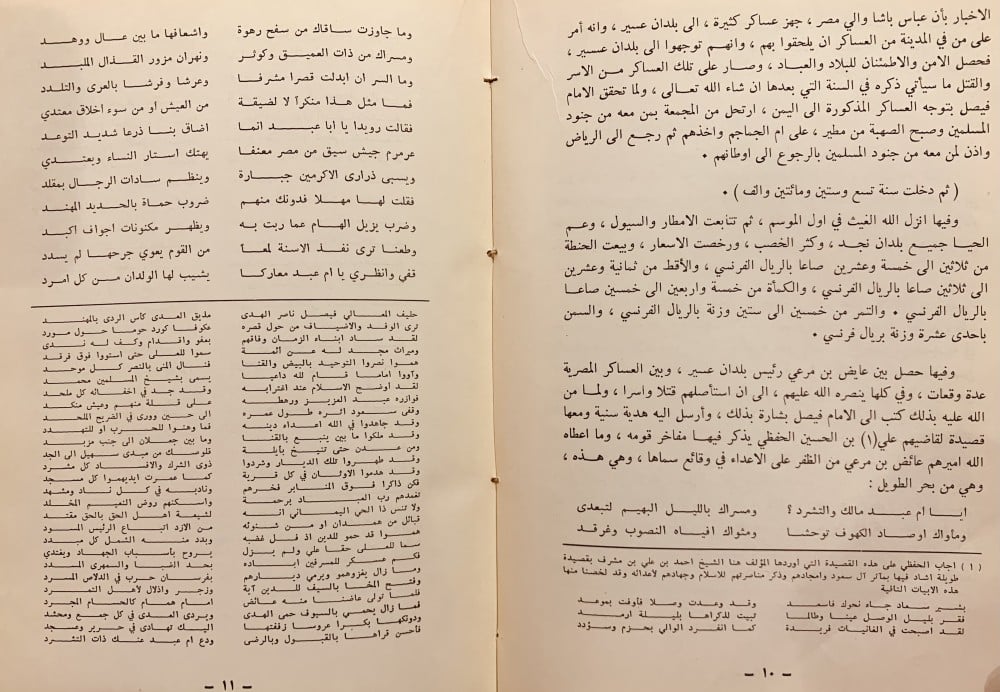 الاخبار بأن عباس باشا والي مصر ، جهز عساكر كثيرة ، الى بلدان عسير ، وانه أمر
على من في المدينة من العساكر ان يلحقوا بهم ، وانهم توجهوا الى بلدان عسير ،
فحصل الامن والاطمئنان للبلاد والعباد ، وصار على تلك العساكر من الاسر
والقتل ما سيأتي ذكره في السنة التي بعدها ان شاء الله تعالى ، ولما تحقق الامام
فيصل بتوجه العساكر المذكورة الى اليمن ، ارتحل من المجمعة بمن معه من جنود
المسلمين وصبح الصهبة من مطير ، على ام الجماجم واخذهم ثم رجع الى الرياض
واذن لمن معه من جنود المسلمين بالرجوع الى اوطانهم •
( ثم دخلت سنة تسع وستين ومائتين والف ) •
وفيها انزل الله الغيث في اول الموسم ، ثم تتابعت الامطار والسيول ، وعم
الحيا جميع بلدان نجد ، وكثر الخصب ، ورخصت الاسعار ، وبيعت الحنطة
من ثلاثين الى خمسة وعشرين صاعا بالريال الفرنسي ، والأقط من ثمانية وعشرين
الى ثلاثين صاعا بالريال الفرنسي ، والكمأة من خمسة واربعين الى خمسين صاعا
بالريال الفرنسي • والتمر من خمسين الى ستين وزنة بالريال الفرنسي ، والسمن
باحدى عشرة وزنة بريال فرنسي •
وفيها حصل بين عايض بن مرعي رئيس بلدان عسير ، وبين العساكر المصرية
عدة وقعات ، وفي كلها ينصره الله عليهم ، الى ان استأصلهم قتلا واسرا ، ولما من
الله عليه بذلك كتب الى الامام فيصل بشارة بذلك ، وأرسل اليه هدية سنية ومعها
قصيدة لقاضيهم علي(١) بن الحسين الحفظي يذكر فيها مفاخر قومه ، وما اعطاه
الله اميرهم عائض بن مرعي من الظفر على الاعداء في وقائع سماها ، وهي هذه ،
وهي من بحر الطويل :
ايا ام عبد مالك والتشرد ؟ ومسراك بالليل البهيم لتبعدى
ومأواك اوصاد الكهوف توحشا ومثواك افياء النصوب وغرقد
( ١ ) اجاب الحفظي على هذه القصيدة التي اوردها المؤلف هنا الشيخ احمد بن علي بن مشرف بقصيدة
طويلة اشاد فيها بمآثر آل سعود وامجادهم وذكر مناصرتهم للاسلام وجهادهم لأعدائه وقد لخصنا منها
هذه الابيات التالية
بشير سعاد جاء نحوك فاسعد وقد وعدت وصلا فأوفت بموعد
فقر بليل الوصل عينا وطالما تبيت لذكراها بليلة ارمد
لقد اصبحت في الغانيات فريدة كما انفرد الوالي بحزم وسؤدد
– ١٠ –
وما جاوزت ساقاك من سفح رهوة واشعافها ما بين عال ووهد
ومسراك من ذات العميق وكوثر ونهران مزور القذال الملبد
وما السر ان ابدلت قصرا مشرفا وعرشا وفرشا بالعرى والتلدد
فما مثل هذا منكرا لا لضيقة من العيش او من سوء اخلاق معتدي
فقالت رويدا يا ابا عبد انما اضاق بنا ذرعا شديد التوعد
عرمرم جيش سيق من مصر معنفا يهتك استار النساء ويعتدي
ويسبى ذرارى الاكرمين جبارة وينظم سادات الرجال بمقلد
فقلت لها مهلا فدونك منهم ضروب حماة بالحديد المهند
وضرب يزيل الهام عما ربت به ويظهر مكنونات اجواف اكبد
وطعنا ترى نفذ الاسنة لمعا من القوم يعوي جرحها لم يسدد
قفي وانظري يا ام عبد معاركا يشيب لها الولدان من كل امرد
حليف العالي فيصل ناصر الهدى مذيق العدى كأس الردى بالمهند
ترى الوفد والاضياف من حول قصره عكوفا كورد حوما حول مورد
لقد ساد ابناء الزمان وفاقهم بعفو واقدام وكف له ندى
وميراث مجد له عن ائمة سموا للعلى حتى استووا فوق فرقد
هموا نصروا التوحيد بالبيض والقنا فنال المنى بالنصر كل موحد
وآووا اماما قام لله داعيا يسمى بشيخ المسلمين محمد
لقد اوضح الاسلام عند اغترابه وقد جد في اخفائه كل ملحد
فوازره عبد العزيز ورهطه على قلة منهم وعيش منكد
وقفى سعود اثره طول عمره الى حين وورى في الضريح الملحد
وقد جاهدوا في الله اعداء دينه فما وهنوا للحرب او للتهدد
وقد ملكوا ما بين ينبع بالقنا وما بين جعلان الى جنب مزبد
ومن عدن حتى تنيخ بأيلة قلوصك من مبدى سهيل الى الجد
وقد طهروا تلك الديار وشردوا ذوى الشرك والافساد كل مشرد
وقد هدموا الاوثان في كل قرية كما عمرت ايديهموا كل مسجد
فكن ذاكرا فوق المنابر فخرهم وناديه في كل ناد ومشهد
تغمدهم رب العباد برحمة واسكنهم روض النعيم المخلد
ولا تنس ذا الحي اليماني انه لشيعة اهل الحق بالحق مقتد
قبائل من همدان او من شنوئه من الازد اتباع الرئيس المسود
هموا قد حمو للدين اذ فل غضبه وبدد منه الشمل كل مبدد
سما للعلى حقا علي ولم يزل يروح بأسباب الجهاد ويغتدي
فكم عسكر للمرفين اباده بحد الضبا والسمهري المسدد
وما زال يغزوهم ويرمي ديارهم بفرسان حرب في الدلاص المسرد
وفتح المخا بالسيف للدين آية وزجر واذلال لاهل التمرد
فلما تولى عاضنا منه عائض امام همام كالحسام المجرد
فما زال يحمي بالسيوف حمى الهدى ويردى العدى في كل جمع ومحشد
ودونكها بكرا عروسا زففتها اليك تهادى في حرير وعسجد
فأحسن قراها بالقبول وبالرضى ودع ام عبد عنك ذات التشرد
– ١١ –